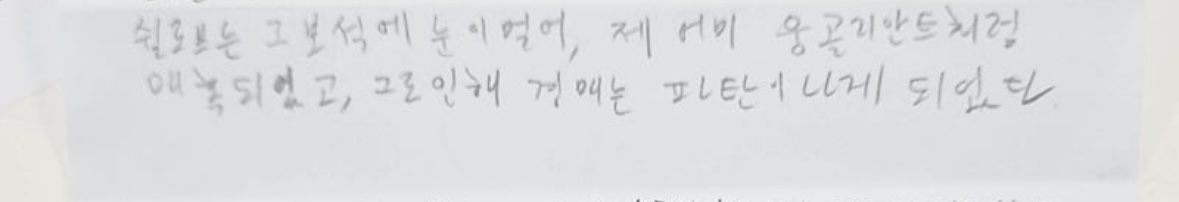 쉴로브는 그 보석에 눈이 멀어, 제 어미 웅골리안트처럼
매혹되었고, 그로인해 경매는 파탄이 나게 되었다.